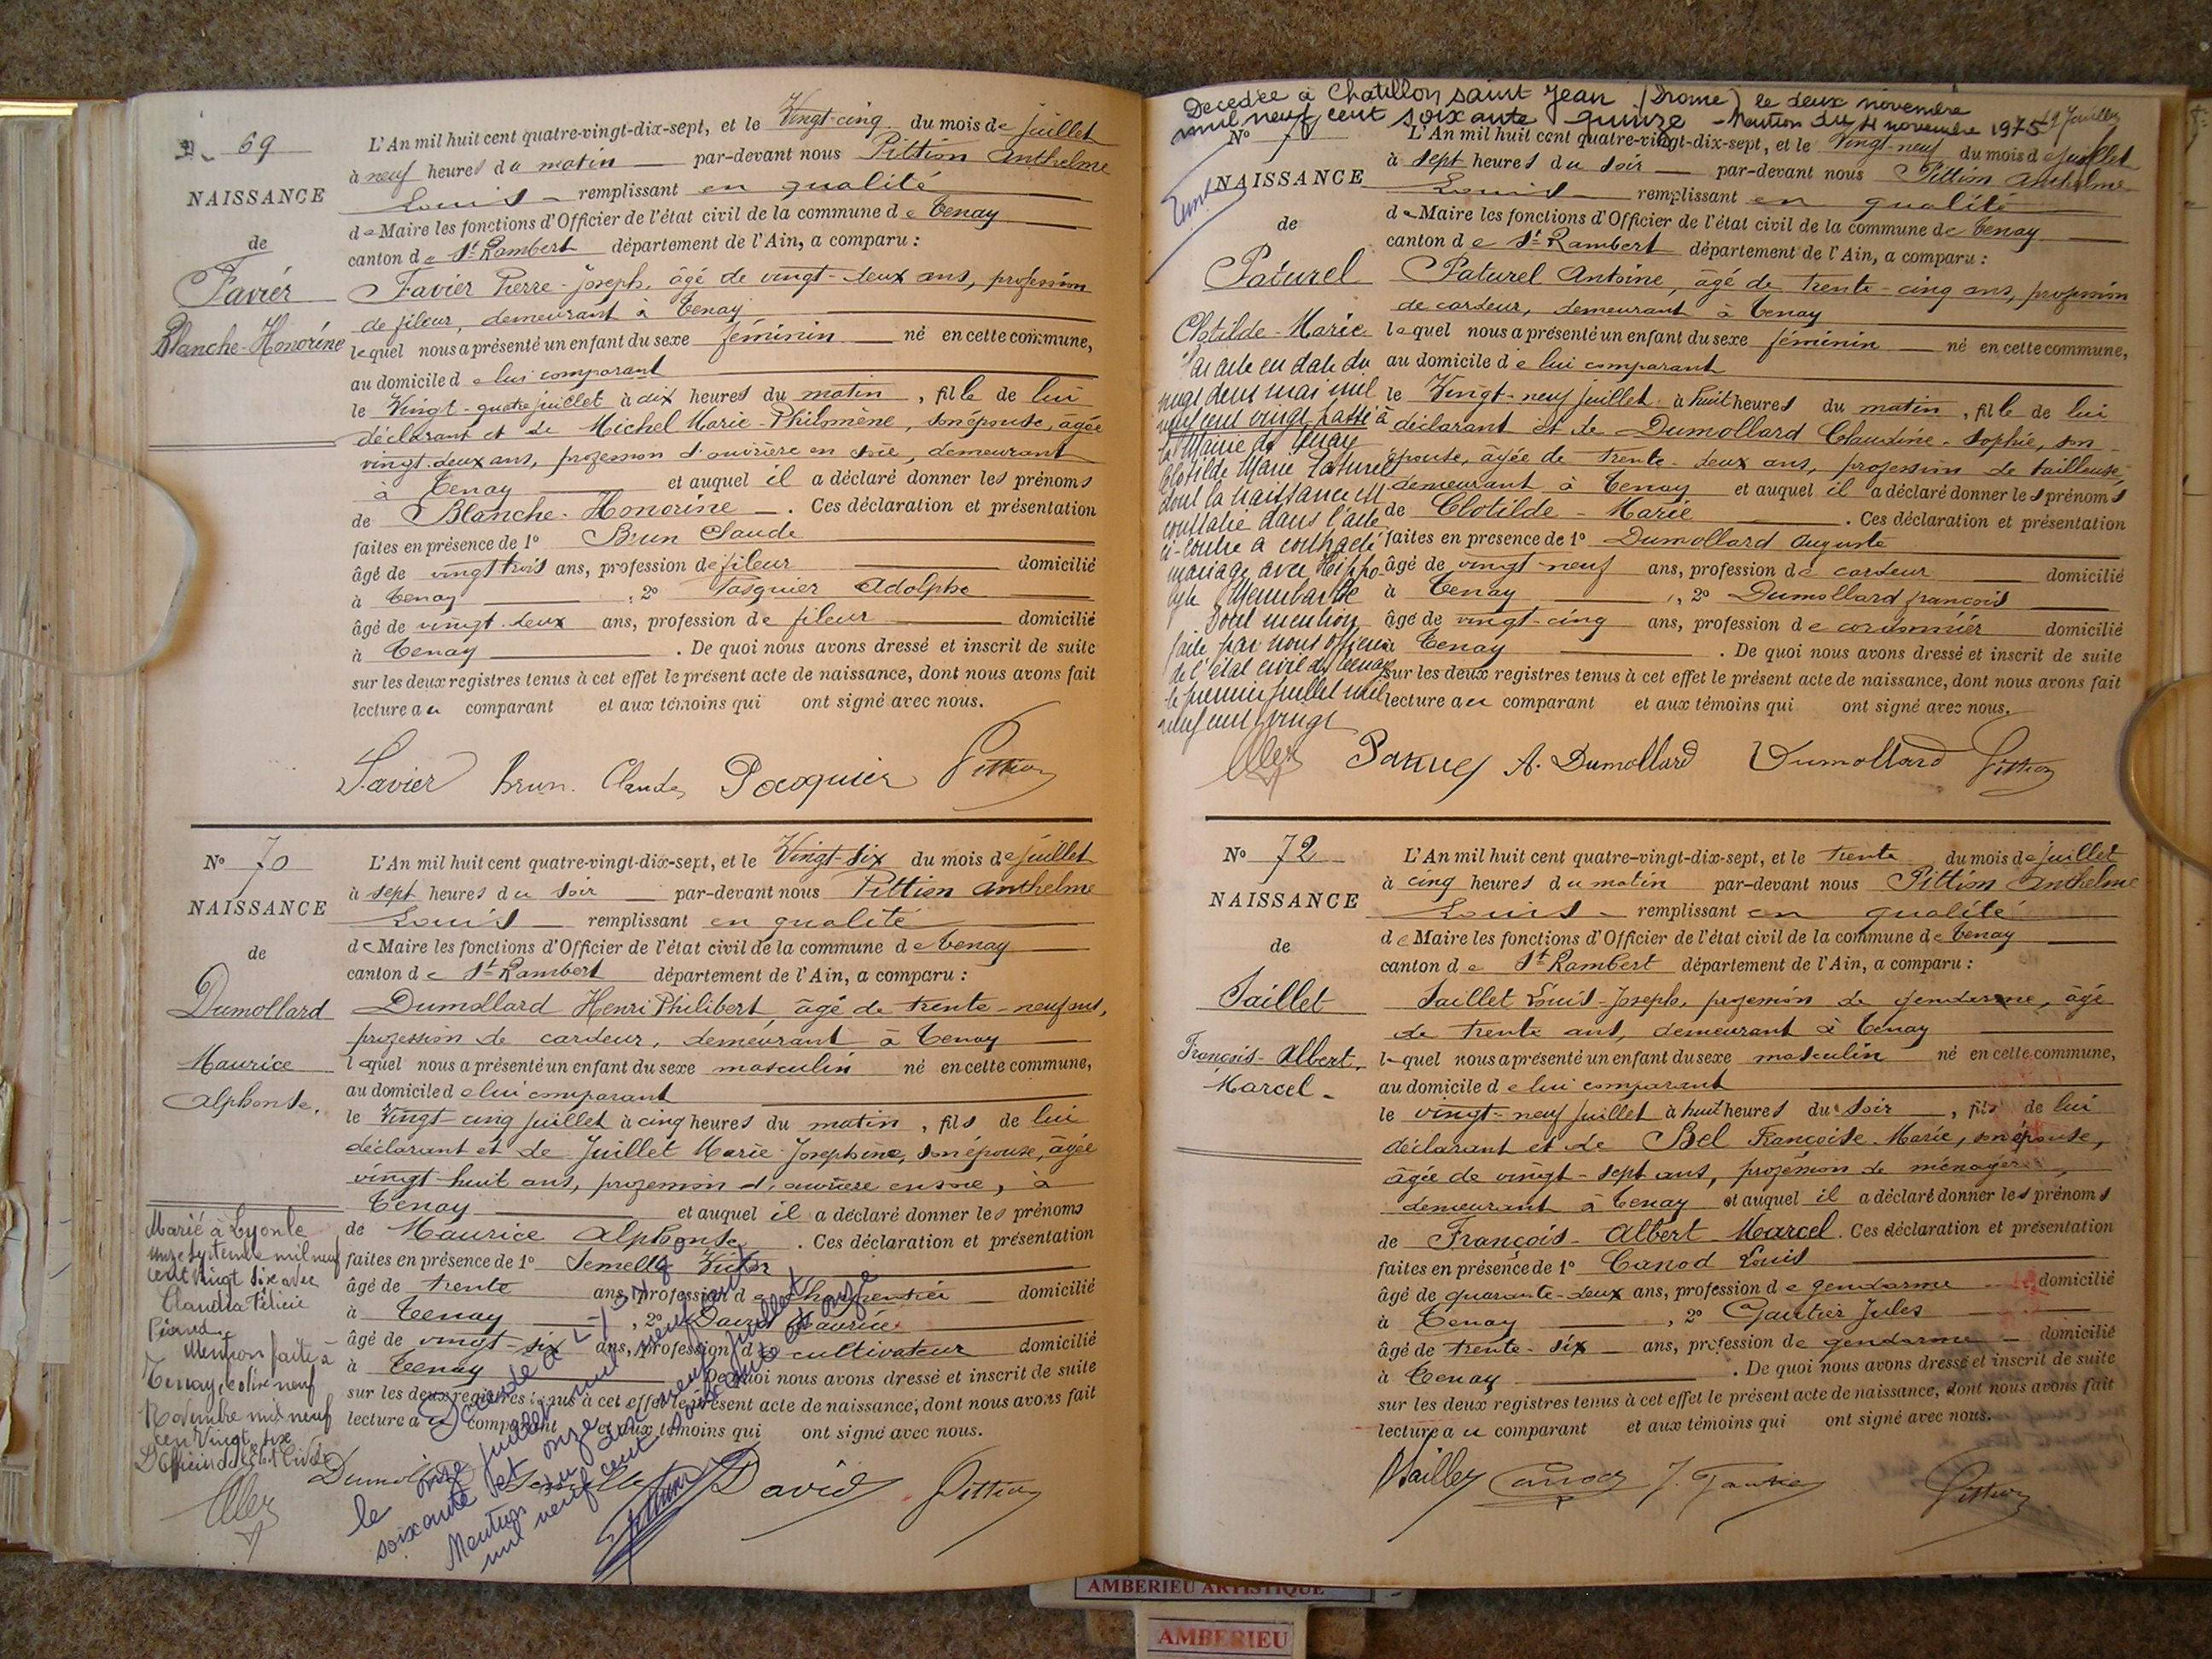 N° 69
NAISSANCE
de
Favier
Blanche-Honorine
L'An mil huit cent quatre-vingt-dix-sept, et le Vingt-cinq du mois de juillet
à neuf heures du matin par-devant nous Pittion Anthelme
Louis remplissant en qualité
de Maire les fonctions d'Officier de l'état civil de la commune de Tenay
canton de St Rambert département de l'Ain, a comparu :
Favier Pierre-Joseph, âgé de vingt-deux ans, profession
de fileur, demeurant à Tenay
lequel nous a présenté un enfant du sexe féminin né en cette commune,
au domicile de lui comparant
le Vingt-quatre juillet à dix heures du matin, fille de lui
déclarant et de Michel Marie-Philomène, son épouse, âgée
vingt-deux ans, profession d'ouvrière en soie, demeurant
à Tenay et auquel il a déclaré donner les prénoms
de Blanche-Honorine. Ces déclaration et présentation
faites en présence de 1° Brun Claude
âgé de vingt trois ans, profession de fileur domicilié
à Tenay, 2° Pasquier Adolphe
âgé de vingt-deux ans, profession de fileur domicilié
à Tenay. De quoi nous avons dressé et inscrit de suite
sur les deux registres tenus à cet effet le présent acte de naissance, dont nous avons fait
lecture au comparant et aux témoins qui ont signé avec nous.
Favier Brun Claude Pasquier Pittion
N° 70
NAISSANCE
de
Dumollard
Maurice
Alphonse.
L'An mil huit cent quatre-vingt-dix-sept, et le Vingt-six du mois de juillet
à sept heures du soir par-devant nous Pittion Anthelme
Louis remplissant en qualité
de Maire les fonctions d'Officier de l'état civil de la commune de Tenay
canton de St Rambert département de l'Ain, a comparu :
Dumollard Henri Philibert, âgé de trente-neuf ans,
profession de cardeur, demeurant à Tenay
lequel nous a présenté un enfant du sexe masculin né en cette commune,
au domicile de lui comparant
le Vingt-cinq juillet à cinq heures du matin, fils de lui
déclarant et de Juillet Marie-Josephine, son épouse, âgée
vingt-huit ans, profession d'ouvrière en soie, à
Tenay et auquel il a déclaré donner les prénoms
de Maurice Alphonse. Ces déclaration et présentation
faites en présence de 1° Semelle Victor
âgé de trente ans, profession de charpentier domicilié
à Tenay, 2° David Maurice
âgé de vingt-six ans, profession de cultivateur domicilié
à Tenay De quoi nous avons dressé et inscrit de suite
sur les deux registres tenus à cet effet le présent acte de naissance, dont nous avons fait
lecture au comparant et aux témoins qui ont signé avec nous.
Marié à Lyon le
onze septembre mil neuf
cent vingt six avec
Claudia Félicie
Mention faite à
Tenay, le dix neuf
Novembre mil neuf
cent vingt six
L'Officier de l'Etat Civil
Décédé à Lyon
le onze juillet mil neuf cent
soixante et onze
Mention du dix neuf juillet
mil neuf cent soixante et onze
Dumollard Semelle David Pittion
Decedée à Chatillon saint Jean (Drome) le deux novembre
mil neuf cent soixante quinze - Mention du 4 novembre 1975
29 Juillet
N° 71
NAISSANCE
de
Paturel
Clotilde-Marie
L'An mil huit cent quatre-vingt-dix-sept, et le Vingt-neuf du mois de juillet
à sept heures du soir par-devant nous Pittion Anthelme
Louis remplissant en qualité
de Maire les fonctions d'Officier de l'état civil de la commune de Tenay
canton de St Rambert département de l'Ain, a comparu :
Paturel Antoine, âgé de trente-cinq ans, profession
de cardeur, demeurant à Tenay
lequel nous a présenté un enfant du sexe féminin né en cette commune,
au domicile de lui comparant
le Vingt-neuf juillet à huit heures du matin, fille de lui
déclarant et de Dumollard Claudine-Sophie, son
épouse, âgée de trente-deux ans, profession de tailleuse,
demeurant à Tenay et auquel il a déclaré donner les prénoms
de Clotilde-Marie. Ces déclaration et présentation
faites en présence de 1° Dumollard Auguste
âgé de vingt-neuf ans, profession de cardeur domicilié
à Tenay, 2° Dumollard françois
âgé de vingt-cinq ans, profession de cordonnier domicilié
à Tenay. De quoi nous avons dressé et inscrit de suite
sur les deux registres tenus à cet effet le présent acte de naissance, dont nous avons fait
lecture au comparant et aux témoins qui ont signé avec nous.
Par acte en date du
vingt deux mai mil
neuf cent vingt, passé à
la Mairie de Tenay
Clotilde Marie Paturel
dont la naissance est
constatée dans l'acte
ci-contre a contracté
mariage avec Hippo-
lyte
Dont mention
faite par nous officier
de l'état civil de Tenay
le premier juillet mil
neuf cent vingt
Paturel A. Dumollard Dumollard Pittion
N° 72
NAISSANCE
de
Saillet
François-Albert
Marcel
L'An mil huit cent quatre-vingt-dix-sept, et le trente du mois de juillet
à cinq heures du matin par-devant nous Pittion Anthelme
Louis remplissant en qualité
de Maire les fonctions d'Officier de l'état civil de la commune de Tenay
canton de St Rambert département de l'Ain, a comparu :
Saillet Louis-Joseph, profession de gendarme, âgé
de trente ans, demeurant à Tenay
lequel nous a présenté un enfant du sexe masculin né en cette commune,
au domicile de lui comparant
le vingt-neuf juillet à huit heures du soir, fils de lui
déclarant et de Bel Françoise-Marie, son épouse,
âgée de vingt-sept ans, profession de ménagère,
demeurant à Tenay et auquel il a déclaré donner les prénoms
de François-Albert-Marcel. Ces déclaration et présentation
faites en présence de 1° Canod Louis
âgé de quarante-deux ans, profession de gendarme domicilié
à Tenay, 2° Gautier Jules
âgé de trente-six ans, profession de gendarme domicilié
à Tenay. De quoi nous avons dressé et inscrit de suite
sur les deux registres tenus à cet effet le présent acte de naissance, dont nous avons fait
lecture au comparant et aux témoins qui ont signé avec nous.
Saillet Canod J. Gautier Pittion
AMBERIEU ARTISTIQUE
AMBERIEU